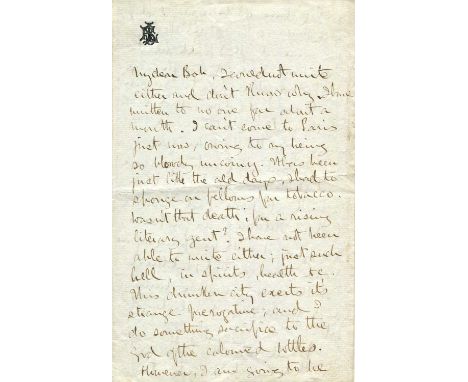 My dear Bob, I could not write
either and don't know why. I have
written to no one for about a
month. I can't come to Paris
just now, owing to my being
so bloody uncoiny. This has been
just like the old days, I had to
sponge on fellows for tobacco.
wasn't that death; for a rising
literary gent? I have not been
able to write either; just such
hell, in spirits, health &c.
This drunken city exerts it's
strange prerogative; and I
do something sacrifice to the
God of the coloured bottles.
However, I am going to be